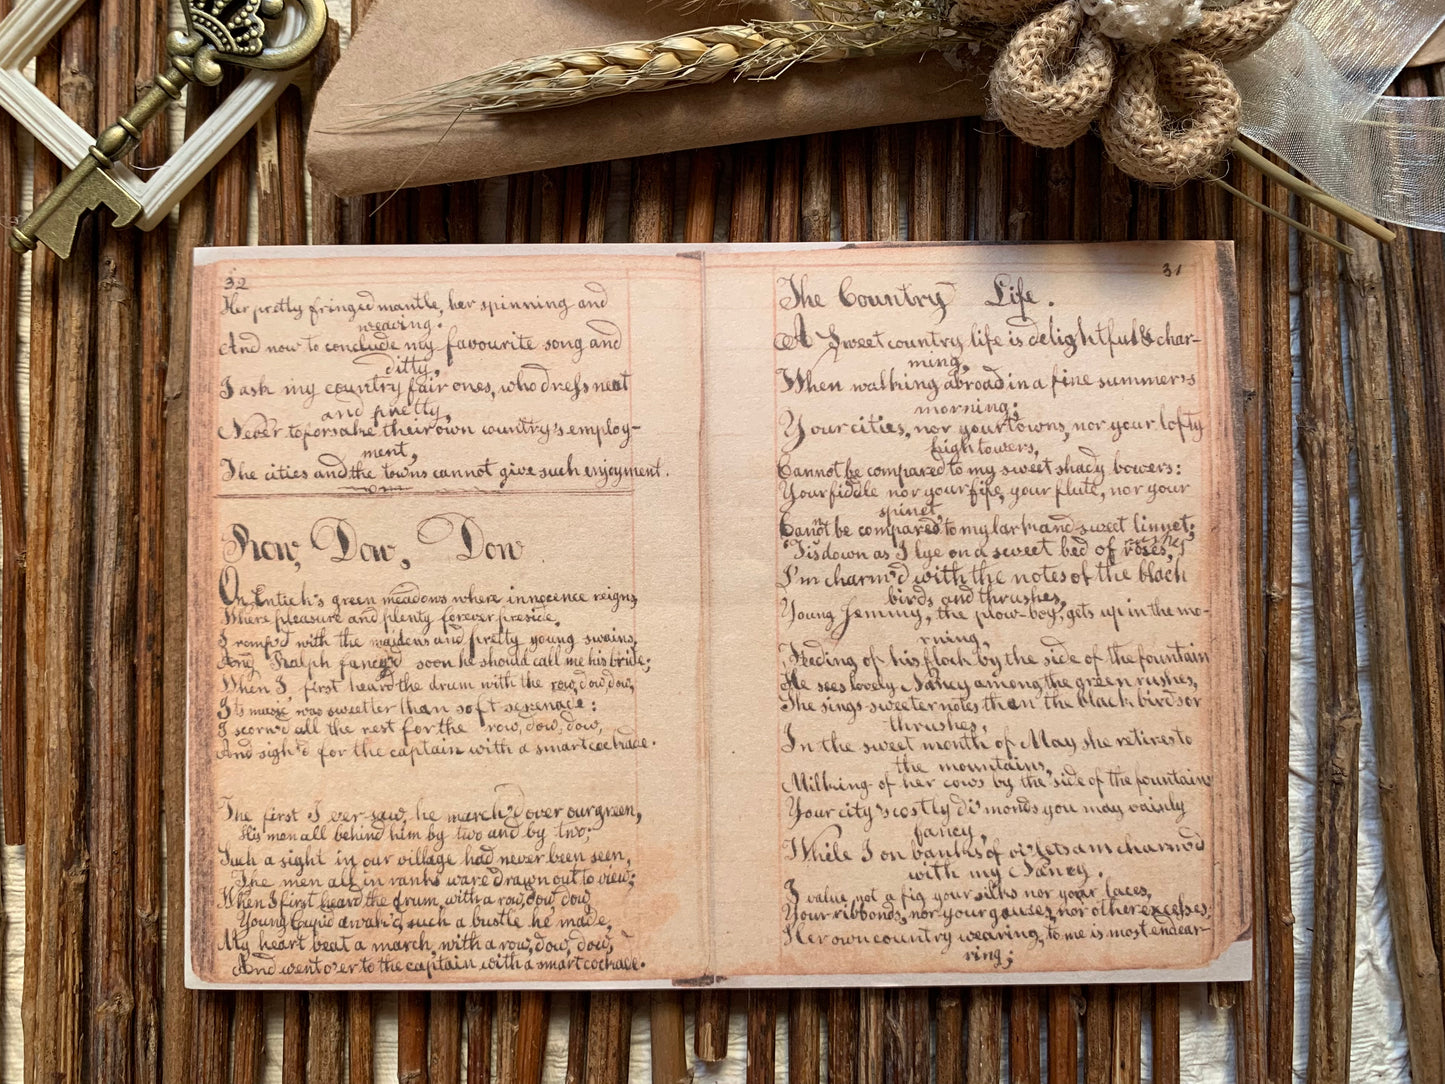 32
Her pretty fringed mantle, her spinning and
weaving.
And now to conclude my favourite song and
ditty,
I ask my country fair ones, who dress neat
and pretty,
Never to forsake their own country's employ-
ment,
The cities and the towns cannot give such enjoyment.
Row, Dow, Dow
On Entick's green meadows where innocence reigns,
Where pleasure and plenty forever preside,
I romp'd with the maidens and pretty young swains,
And Ralph fancy'd soon he should call me his bride;
When I, first heard the drum with the row, dow, dow,
Its music was sweeter than soft serenade:
I scorn'd all the rest for the row, dow, dow,
And sigh'd for the captain with a smart cockade.
The first I ever saw, he march'd over our green,
His men all behind him by two and by two;
Such a sight in our village had never been seen,
The men all in ranks ware drawn out to view;
When I first heard the drum, with a row, dow, dow
Young Cupid awak'd, such a bustle he made,
My heart beat a march, with a row, dow, dow,
And went o'er to the captain with a smart cockade.
31
The Country Life.
A Sweet country life is delightful & char-
ming,
When walking abroad in a fine summer's
morning;
Your cities, nor your towns, nor your lofty
high towers,
Cannot be compared to my sweet shady bowers:
Your fiddle nor your fife, your flute, nor your
spinet,
Cannot be compared to my lark and sweet linnet;
'Tis down as I lye on a sweet bed of roses, rushes
I'm charm'd with the notes of the black
birds and thrushes,
Young Jemmy, the plow-boy, gets up in the mo-
rning,
Feeding of his flock by the side of the fountain
He sees lovely Nancy among the green rushes,
She sings sweeter notes than the black birds or
thrushes,
In the sweet month of May she retires to
the mountains,
Milking of her cows by the side of the fountain
Your city's costly di'monds you may vainly
fancy,
While I on banks of vi'lets am charm'd
with my Nancy.
I value not a fig your silks nor your laces,
Your ribbonds, nor your gauses, nor other excesses;
Her own country wearing, to me is most endear-
ring;